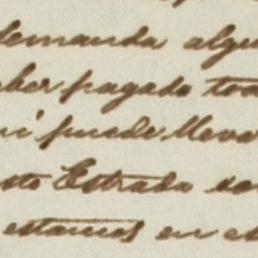 demanda algu
ber pagado to
puede lleva
sto Estrada
estamos en e